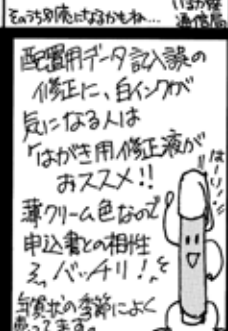 そのうち別売になるかもね…
通信局
配置用データ記入誤の
修正に、白インクが
気になる人は
「はがき用修正液が
おススメ!!
薄クリーム色なので
申込書との相性
バッチリ!
年賀状の季節によく
売ってます。
はーい!!